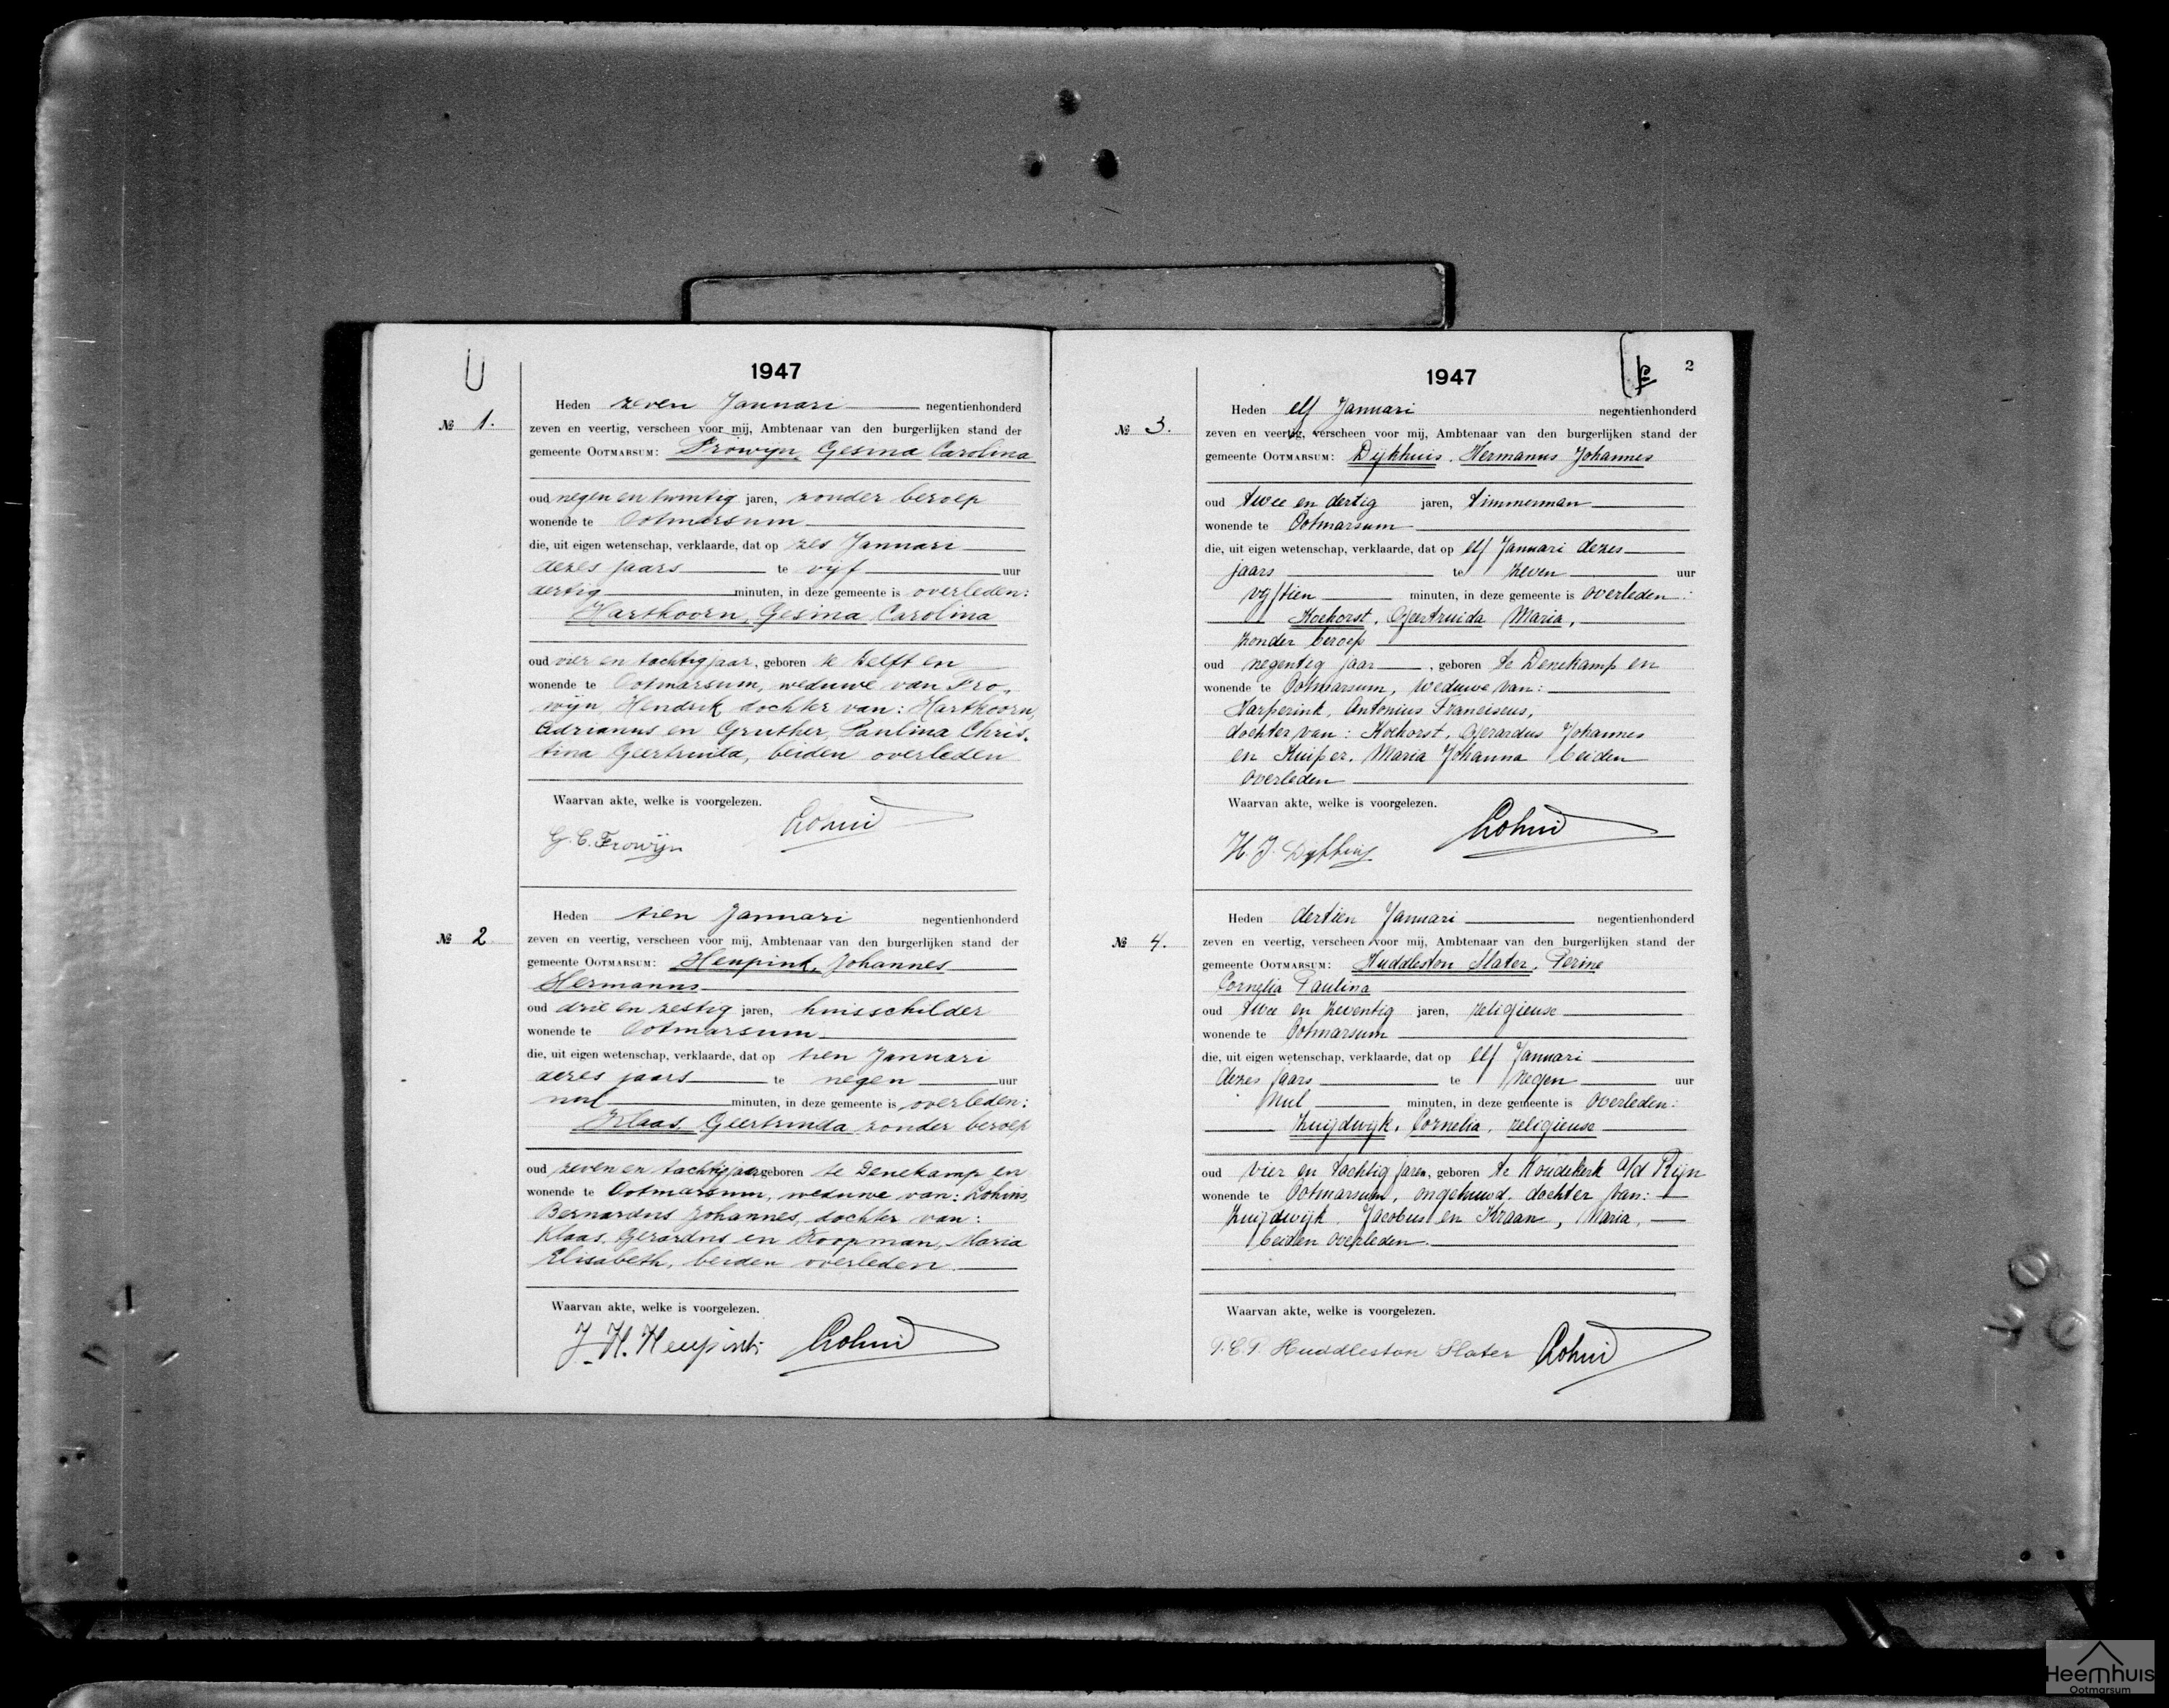 1947
Heden zeven Januari negentienhonderd
№ 1.
zeven en veertig, verscheen voor mij, Ambtenaar van den burgerlijken stand der
gemeente OOTMARSUM: Frowijn, Gesina Carolina
oud negen en twintig jaren, zonder beroep
wonende te Ootmarsum
die, uit eigen wetenschap, verklaarde, dat op zes Januari
dezes jaars te vijf uur
dertig minuten, in deze gemeente is overleden:
Harthoorn, Gesina Carolina
oud vier en tachtig jaar, geboren te Delft en
wonende te Ootmarsum, weduwe van Fro„
wijn Hendrik dochter van: Harthoorn,
Adrianus en Gruther, Paulina Chris„
tina Geertruida, beiden overleden
Waarvan akte, welke is voorgelezen.
G. C. Frowijn
Heden tien Januari negentienhonderd
№ 2
zeven en veertig, verscheen voor mij, Ambtenaar van den burgerlijken stand der
gemeente OOTMARSUM: Heupink, Johannes
Hermanus
oud drie en zestig jaren, huisschilder
wonende te Ootmarsum
die, uit eigen wetenschap, verklaarde, dat op tien Januari
dezes jaars te negen uur
nul minuten, in deze gemeente is overleden:
Klaas, Geertruida zonder beroep
oud zeven en tachtig jaar geboren te Denekamp en
wonende te Ootmarsum, weduwe van:
Bernardus Johannes, dochter van:
Klaas, Gerardus en Koopman, Maria
Elisabeth, beiden overleden.
Waarvan akte, welke is voorgelezen.
J. H. Heupink
2
1947
Heden elf Januari negentienhonderd
№ 3.
zeven en veertig, verscheen voor mij, Ambtenaar van den burgerlijken stand der
gemeente OOTMARSUM: Dijkhuis, Hermanus Johannes
oud twee en dertig jaren, timmerman
wonende te Ootmarsum
die, uit eigen wetenschap, verklaarde, dat op elf Januari dezes
jaars te zeven uur
vijftien minuten, in deze gemeente is overleden:
Koehorst, Geertruida Maria,
zonder beroep
oud negentig jaar, geboren te Denekamp en
wonende te Ootmarsum, weduwe van:
Harperink, Antonius Franciscus,
dochter van: Koehorst, Gerardus Johannes
en Kuiper, Maria Johanna beiden
overleden
Waarvan akte, welke is voorgelezen.
H. J. Dijkhuis
Heden dertien Januari negentienhonderd
№ 4.
zeven en veertig, verscheen voor mij, Ambtenaar van den burgerlijken stand der
gemeente OOTMARSUM: Huddleston Slater, Perine
Cornelia Paulina
oud twee en zeventig jaren, religieuse
wonende te Ootmarsum
die, uit eigen wetenschap, verklaarde, dat op elf Januari
dezes jaars te negen uur
nul minuten, in deze gemeente is overleden:
Zuijdwijk, Cornelia, religieuse
oud vier en tachtig jaren, geboren te Koudekerk a/d Rijn
wonende te Ootmarsum, ongehuwd, dochter van:
Zuijdwijk, Jacobus en Kraan, Maria,
beiden overleden.
Waarvan akte, welke is voorgelezen.
P. C. P. Huddleston Slater
Heemhuis
Ootmarsum